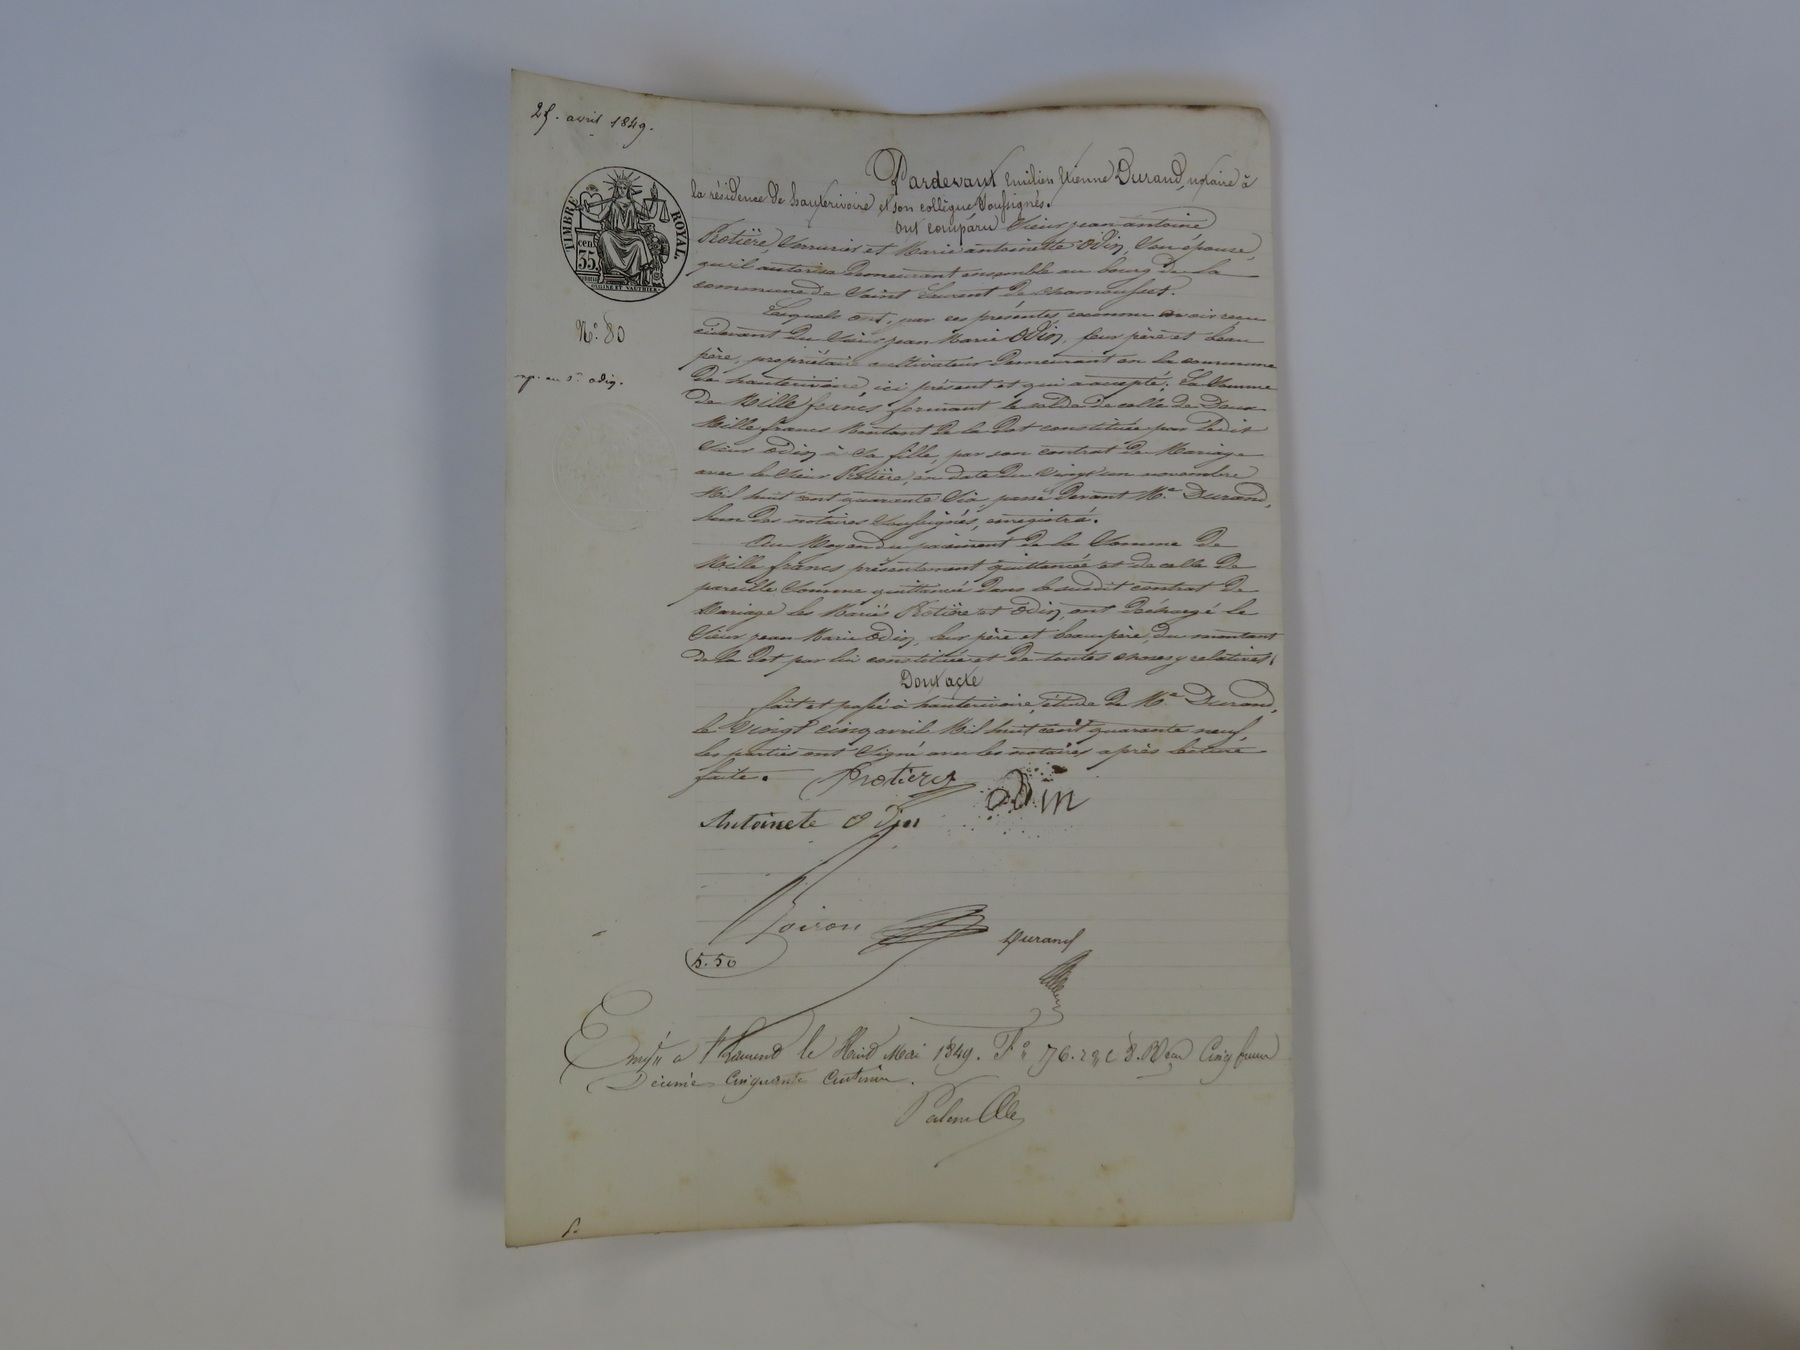 25. avril 1849.
Pardevant Emilien Etienne Durand, notaire à
la résidence de hauterivoire et son collègue soussignés.
TIMBRE ROYAL
cen 35.
Ont comparu Sieur jean antoine
Protière, Serrurier et Marie antoinette Odin, Son épouse,
qu'il autorise demeurant ensemble au bourg de la
commune de Saint Laurent de chamousset.
N.º 80
Lesquels ont, par ces présentes, reconnu avoir reçu
cidevant du Sieur jean Marie Odin, leur père et beau
père, propriétaire cultivateur demeurant en la commune
exp. au Sr. odin.
de hauterivoire ici présent et qui a accepté; La Somme
de Mille francs formant le solde de celle de Deux
Mille francs Montant de la dot constituée par ledit
Sieur Odin à Sa fille, par son contrat de Mariage
avec le Sieur Protière, en date du vingt un novembre
Mil huit cent quarante Six, passé devant Me. Durand,
l'un des notaires Soussignés, enregistré.
Au Moyen du paiement de la Somme de
Mille francs présentement quittancée et de celle de
pareille Somme quittancée dans le susdit contrat de
Mariage les Mariés Protière et Odin, ont déchargé le
Sieur jean Marie Odin, leur père et beau père, du montant
de la dot par lui constituée et de toutes choses y relatives.
Dont acte
fait et passé à hauterivoire, étude de Me. Durand,
le Vingt cinq avril Mil huit cent quarante neuf
les parties ont Signé avec les notaires après lecture
faite. Protière Odin
Antoinete Odin
Coiron Durand
5.50
Enregé a St Laurent le Huit Mai 1849. Fo. 76. Reçu Cinq francs
Décime Cinquante Centimes.